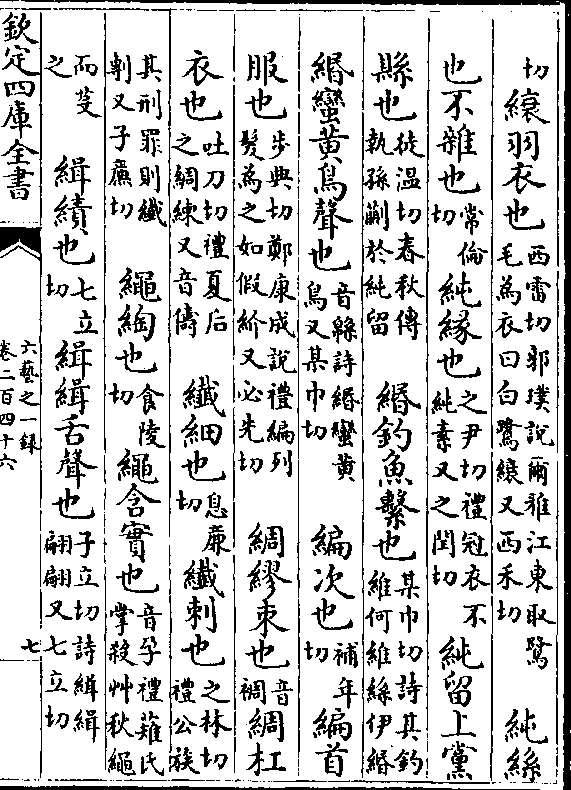 切縗羽衣也西雷切郭璞說爾雅江東取鷺毛為衣曰白鷺縗又西禾切純絲
也不雜也常倫切純緣也之尹切禮冠衣不純素又之閏切純留上黨
縣也徒溫切春秋傳執孫蒯於純留緡釣魚繫也某巾切詩其釣維何維絲伊緡
緡蠻黄鳥聲也音緜詩緡蠻黄鳥又某巾切編次也補年切編首
服也步典切鄭康成說禮編列髮為之如假紒又必先切綢繆束也音裯綢杠
衣也吐刀切禮夏后之綢練又音儔纖細也息廉切纖刺也之林切禮公族
其刑罪則纖剸又子廉切繩綯也食陵切繩含實也音孕禮薙氏掌殺艸秋繩
而芟之緝績也七立切緝緝舌聲也子立切詩緝緝翩翩又七立切
欽定四庫全書
六藝之一録
卷二百四十六
七